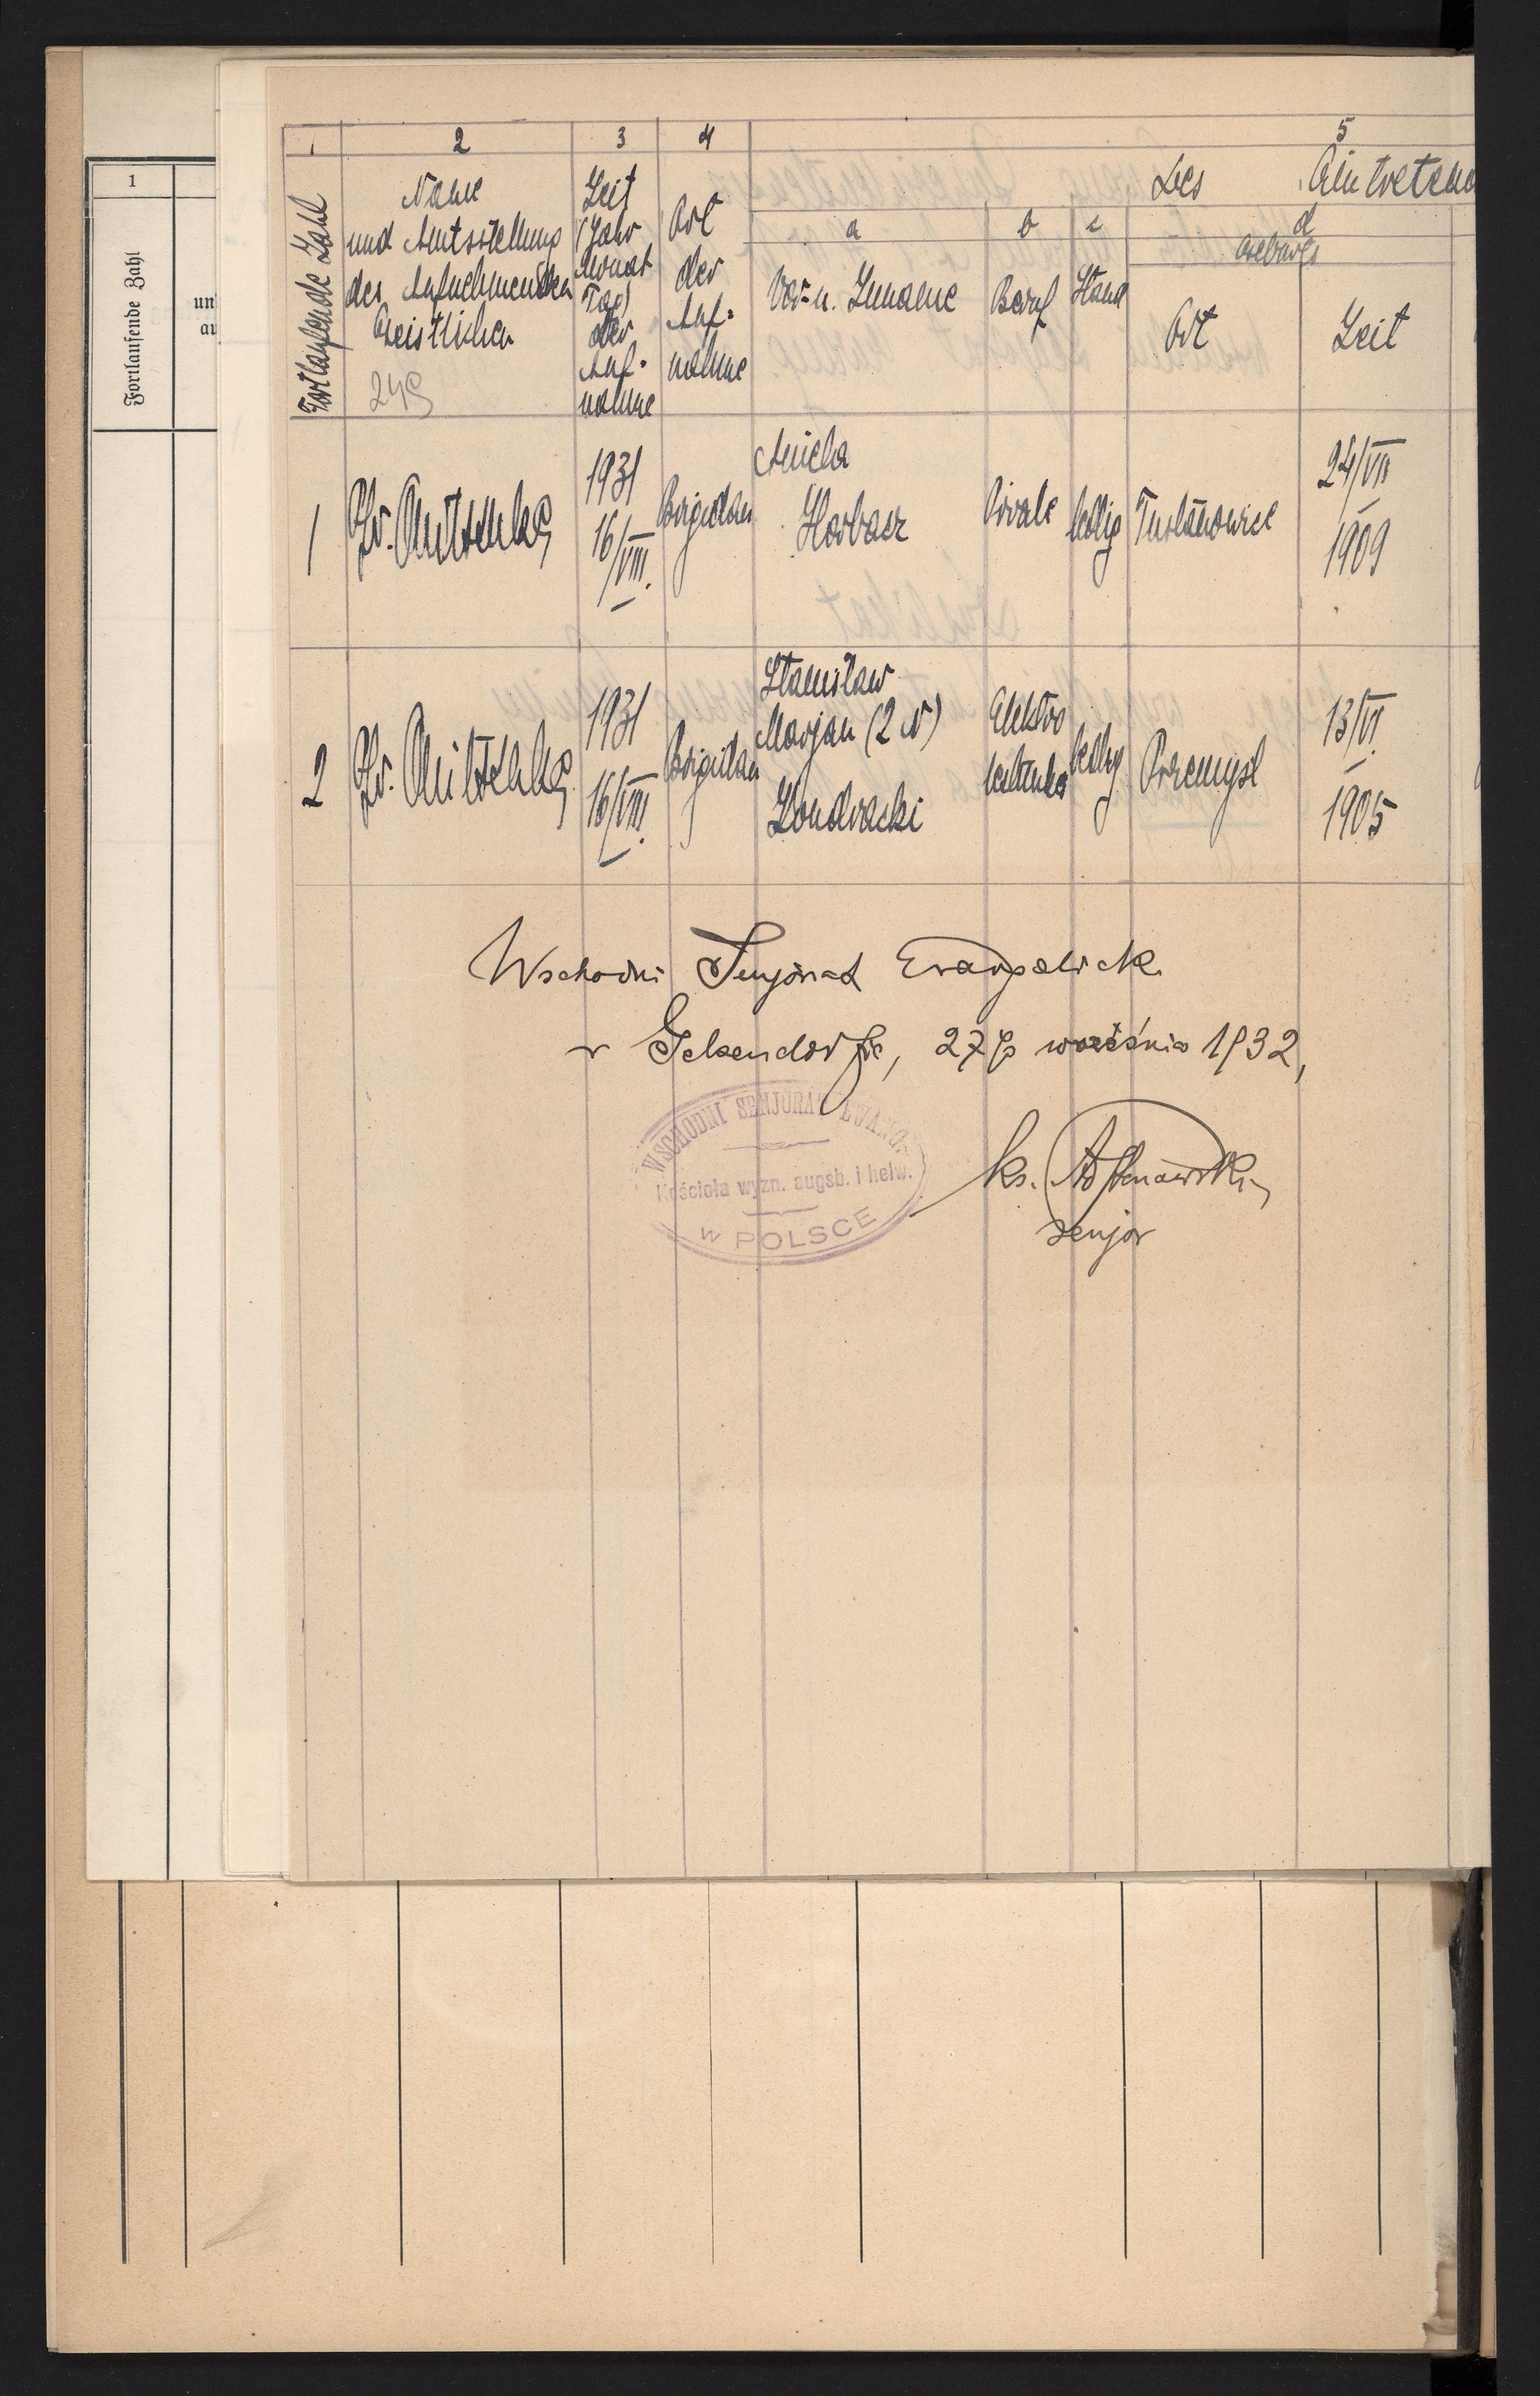 1
Fortlaufende Zahl
un
au
1 2 3 4 5
Fortlaufende Zahl
Name
und Amtsstellung
des Aufnehmenden
Geistlichen
249
Zeit
(Jahr
Monat
Tag)
der
Auf-
nahme
Ort
der
Auf-
nahme
Des Eintretend
a b c d
Vor- u. Zuname
Beruf
Stand
Geburts
Ort
Zeit
1
Pfr.
1931
16/VIII.
Brigidau
Aniela
Horbacz
Private
ledig
Tustanowice
24/VII
1909
2
Pfr.
1931
16/VIII.
Brigidau
Stanisław
Marjan (2 N)
Kondracki
Elektro
techniker
ledig
Przemysl
13/VI
1905
Wschodni Senjorat Ewangelicki
w Gelsendorfie, 27 września 1932,
WSCHODNI SENJORAT EWANG.
Kościoła wyzn. augsb. i helw.
W POLSCE
ks.
senjor